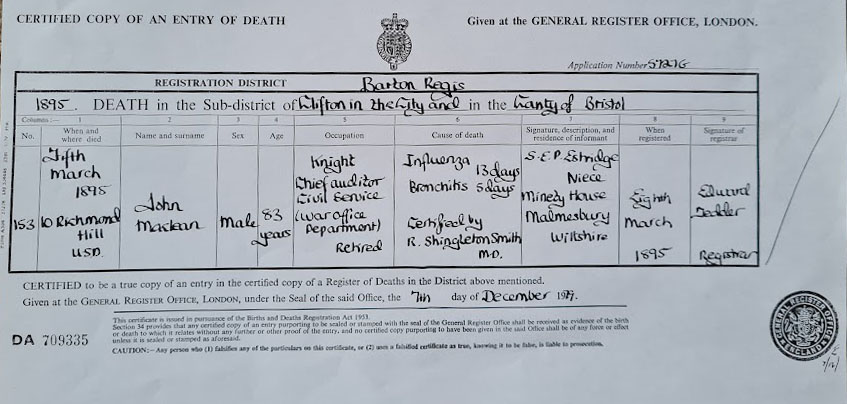 CERTIFIED COPY OF AN ENTRY OF DEATH
Given at the GENERAL REGISTER OFFICE, LONDON.
Application Number
REGISTRATION DISTRICT Barton Regis
1895. DEATH in the Sub-district of Clifton in the City and in the County of Bristol
Columns:— 1 2 3 4 5 6 7 8 9
No. When and where died Name and surname Sex Age Occupation Cause of death Signature, description, and residence of informant When registered Signature of registrar
153
Fifth
March
1895
10 Richmond
Hill
USD.
John
Maclean
Male
83
years
Knight
Chief auditor
Civil Service
(War office
Department)
Retired
Influenza
13 days
Bronchitis 5 days
Certified by
R. Shingleton Smith
M.D.
S.E.P. Estridge
Niece
Minety House
Malmesbury
Wiltshire
Eighth
March
1895
Edward
Tedder
Registrar
CERTIFIED to be a true copy of an entry in the certified copy of a Register of Deaths in the District above mentioned.
Given at the GENERAL REGISTER OFFICE, LONDON, under the Seal of the said Office, the 7th day of December
DA 709335
This certificate is issued in pursuance of the Births and Deaths Registration Act 1953.
Section 34 provides that any certified copy of an entry purporting to be sealed or stamped with the seal of the General Register Office shall be received as evidence of the birth
or death to which it relates without any further or other proof of the entry, and no certified copy purporting to have been given in the said Office shall be of any force or effect
unless it is sealed or stamped as aforesaid.
CAUTION:— Any person who (1) falsifies any of the particulars on this certificate, or (2) uses a falsified certificate as true, knowing it to be false, is liable to prosecution.
GENERAL REGISTER OFFICE
ENGLAND